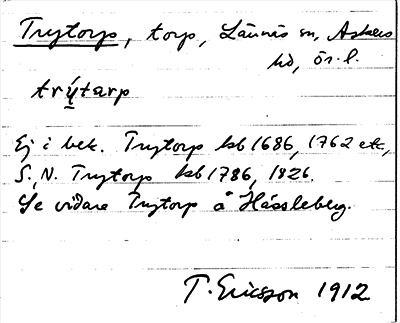 Trytorp, torp, Lännäs sn, Askers
hd, ör. l.
trýtarp
Ej i bek. Trytorp kb 1686, 1762 etc,
S., N. Trytorp kb 1786, 1826.
Se vidare Trytorp å Hässleberg.
T. Ericsson 1912